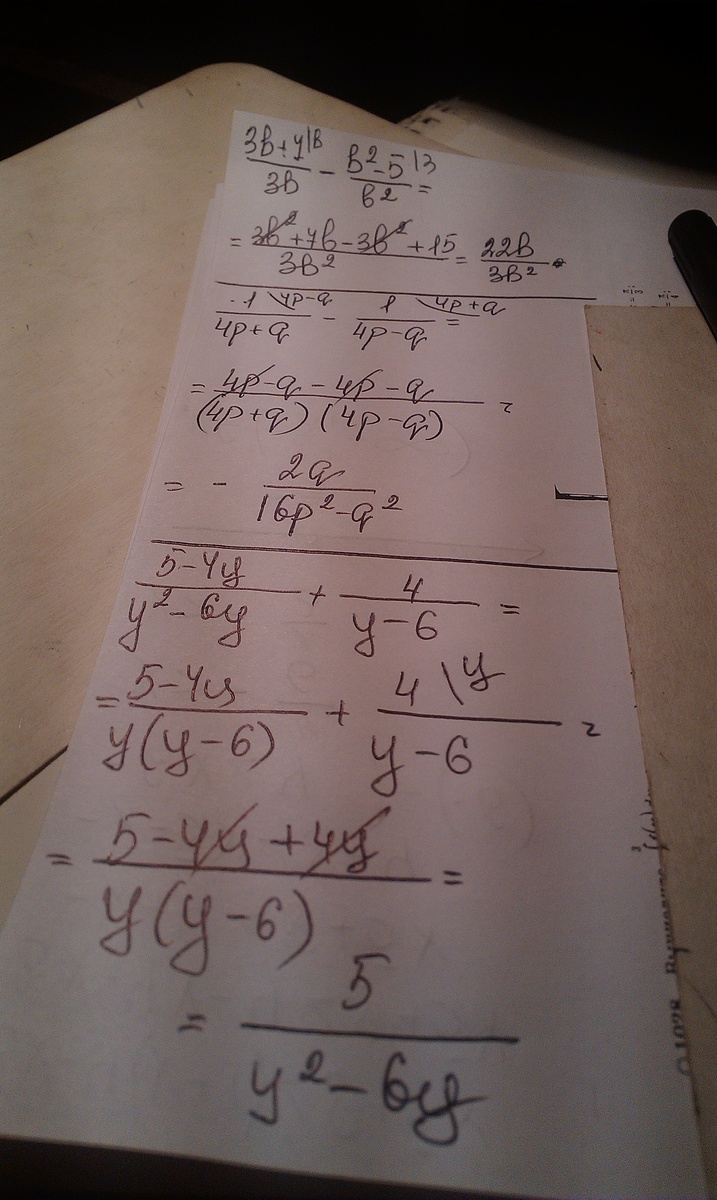 (3b+4\b)/3b - (b²-5\3)/b² =
= (3b²+4b-3b²+15)/3b² = 22b/3b²
(1\4p-q)/(4p+q) - (1\4p+q)/(4p-q) =
= (4p-q-4p-q)/((4p+q)(4p-q)) =
= - 2q/(16p²-q²)
(5-4y)/(y²-6y) + 4/(y-6) =
= (5-4y)/(y(y-6)) + (4\y)/(y-6) =
= (5-4y+4y)/(y(y-6)) =
= 5/(y²-6y)